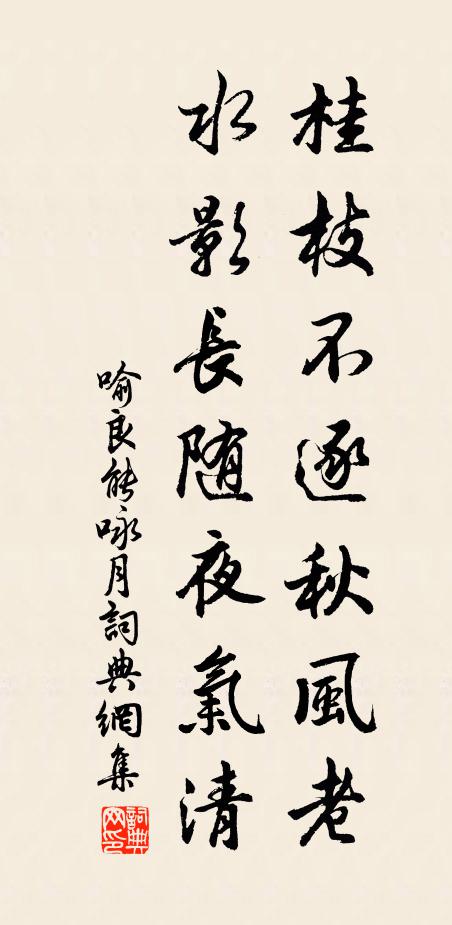 桂枝不逐秋風老
水影長随夜氣清
喻良能咏月詞典網集
詞典網印